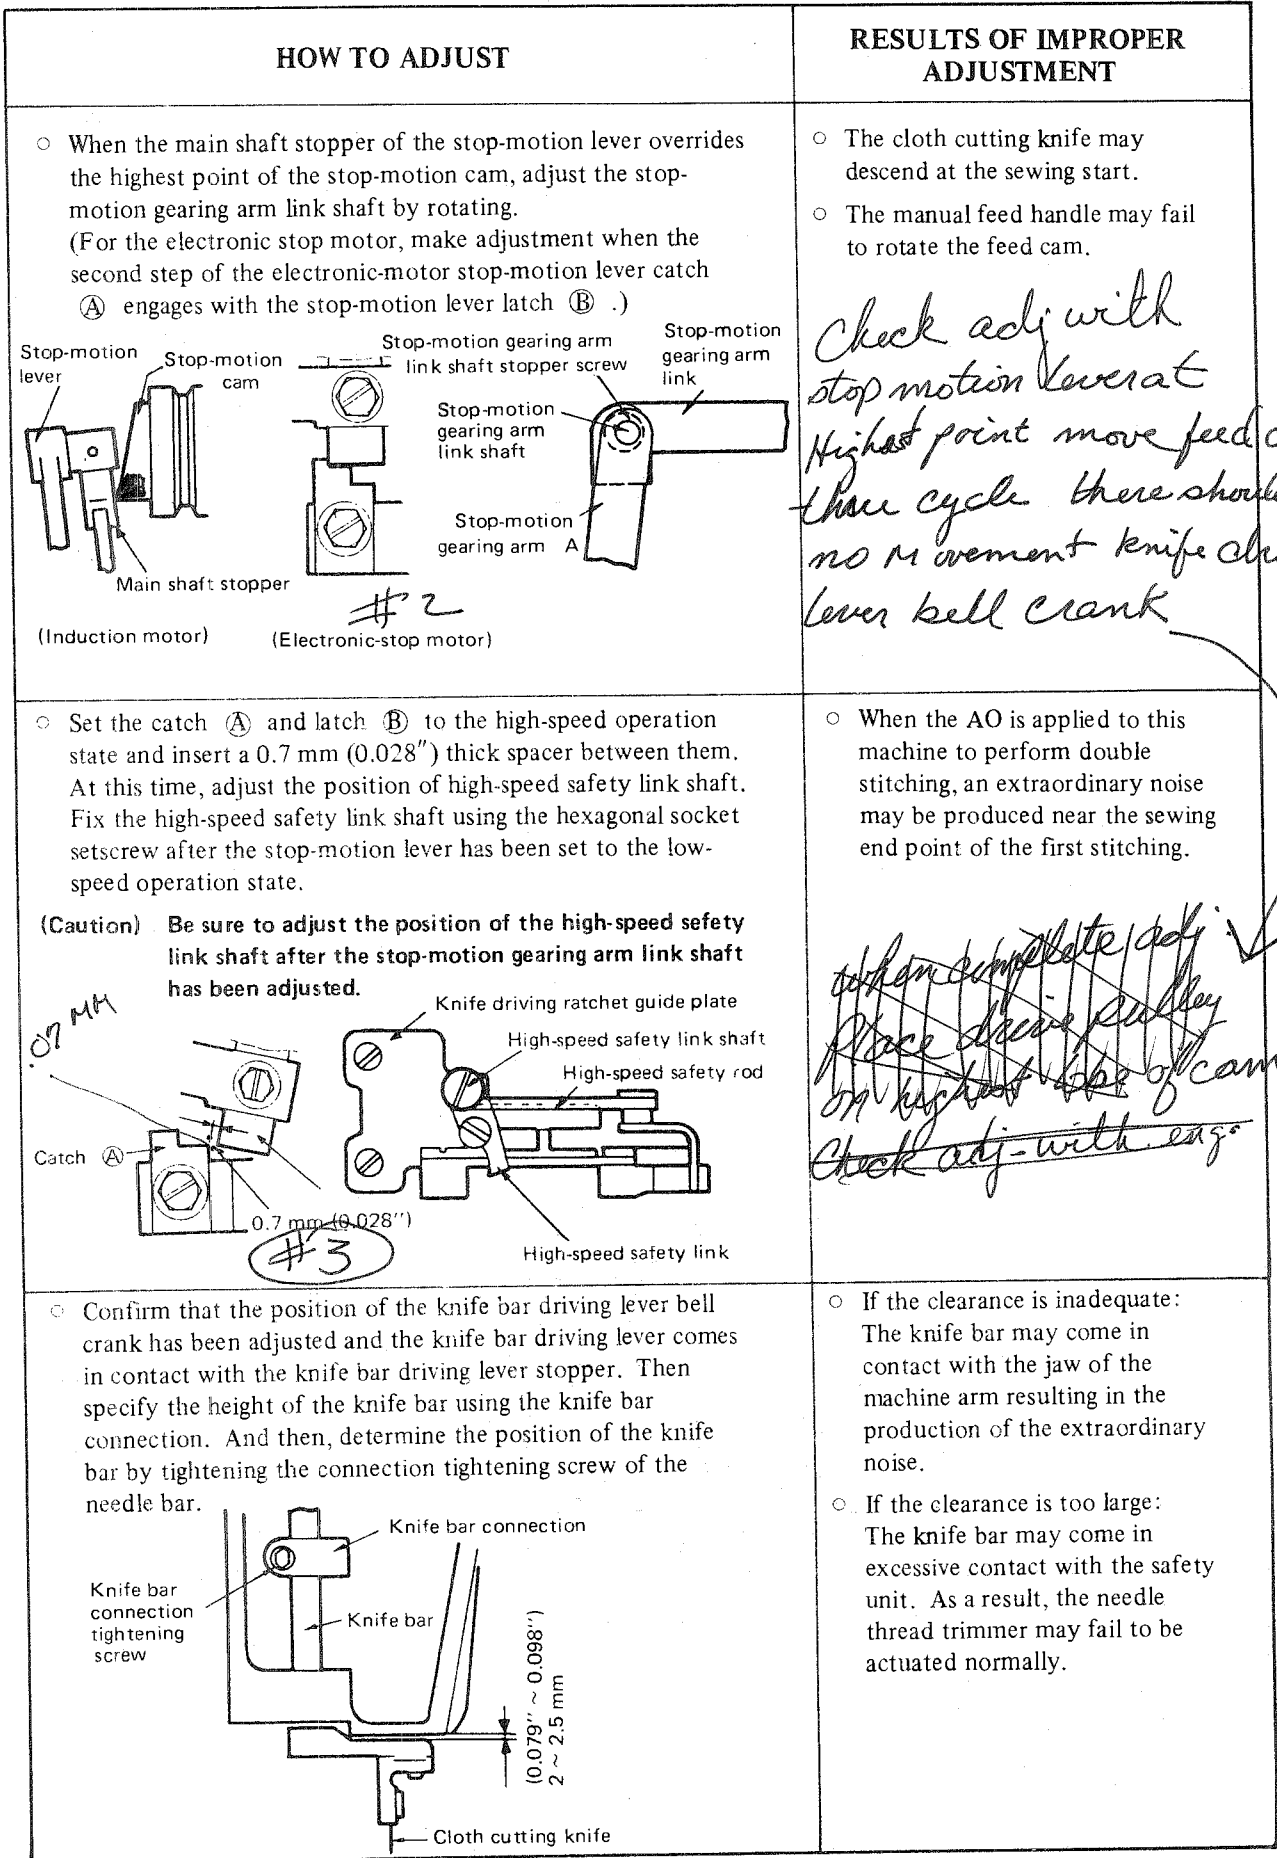 HOW TO ADJUST
RESULTS OF IMPROPER
ADJUSTMENT
○ When the main shaft stopper of the stop-motion lever overrides
the highest point of the stop-motion cam, adjust the stop-
motion gearing arm link shaft by rotating.
(For the electronic stop motor, make adjustment when the
second step of the electronic-motor stop-motion lever catch
Ⓐ engages with the stop-motion lever latch Ⓑ .)
Stop-motion
lever
Stop-motion
cam
Stop-motion gearing arm
link shaft stopper screw
Stop-motion
gearing arm
link
Stop-motion
gearing arm
link shaft
Stop-motion
gearing arm A
Main shaft stopper
#2
(Induction motor)
(Electronic-stop motor)
○ The cloth cutting knife may
descend at the sewing start.
○ The manual feed handle may fail
to rotate the feed cam.
Check adj with
stop motion lever at
Highest point move feed
cycle there
no Movement knife
lever bell crank
○ Set the catch Ⓐ and latch Ⓑ to the high-speed operation
state and insert a 0.7 mm (0.028") thick spacer between them.
At this time, adjust the position of high-speed safety link shaft.
Fix the high-speed safety link shaft using the hexagonal socket
setscrew after the stop-motion lever has been set to the low-
speed operation state.
(Caution) Be sure to adjust the position of the high-speed sefety
link shaft after the stop-motion gearing arm link shaft
has been adjusted.
.07 MM
Knife driving ratchet guide plate
High-speed safety link shaft
High-speed safety rod
Catch Ⓐ
0.7 mm (0.028'')
#3
High-speed safety link
○ When the AO is applied to this
machine to perform double
stitching, an extraordinary noise
may be produced near the sewing
end point of the first stitching.
When complete adj
Place drive pulley
on highest lobe of cam
Check adj-with eng.
○ Confirm that the position of the knife bar driving lever bell
crank has been adjusted and the knife bar driving lever comes
in contact with the knife bar driving lever stopper. Then
specify the height of the knife bar using the knife bar
connection. And then, determine the position of the knife
bar by tightening the connection tightening screw of the
needle bar.
Knife bar connection
Knife bar
connection
tightening
screw
Knife bar
(0.079" ~ 0.098")
2 ~ 2.5 mm
Cloth cutting knife
○ If the clearance is inadequate:
The knife bar may come in
contact with the jaw of the
machine arm resulting in the
production of the extraordinary
noise.
○ If the clearance is too large:
The knife bar may come in
excessive contact with the safety
unit. As a result, the needle
thread trimmer may fail to be
actuated normally.